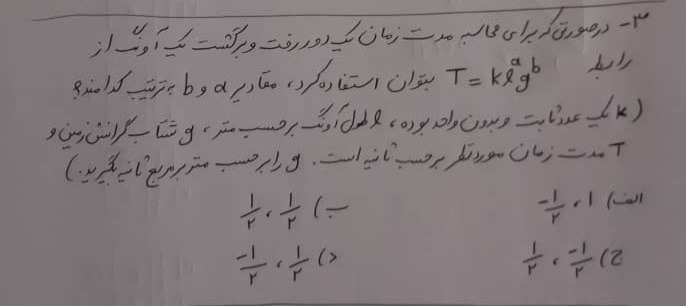 ۳- درصورتی که برای محاسبه مدت زمان یک دور رفت و برگشت یک آونگ از
رابطه T = kl^a g^b بتوان استفاده کرد، مقادیر a و b به ترتیب کدامند؟
(k یک عدد ثابت و بدون واحد بوده، l طول آونگ برحسب متر، g شتاب گرانش زمین و
T مدت زمان مورد نظر برحسب ثانیه است. g را برحسب متر بر مربع ثانیه بگیرید.)
الف) ۱، -۱/۲ ب) ۱/۲، ۱/۲
ج) -۱/۲، ۱/۲ د) ۱/۲، -۱/۲